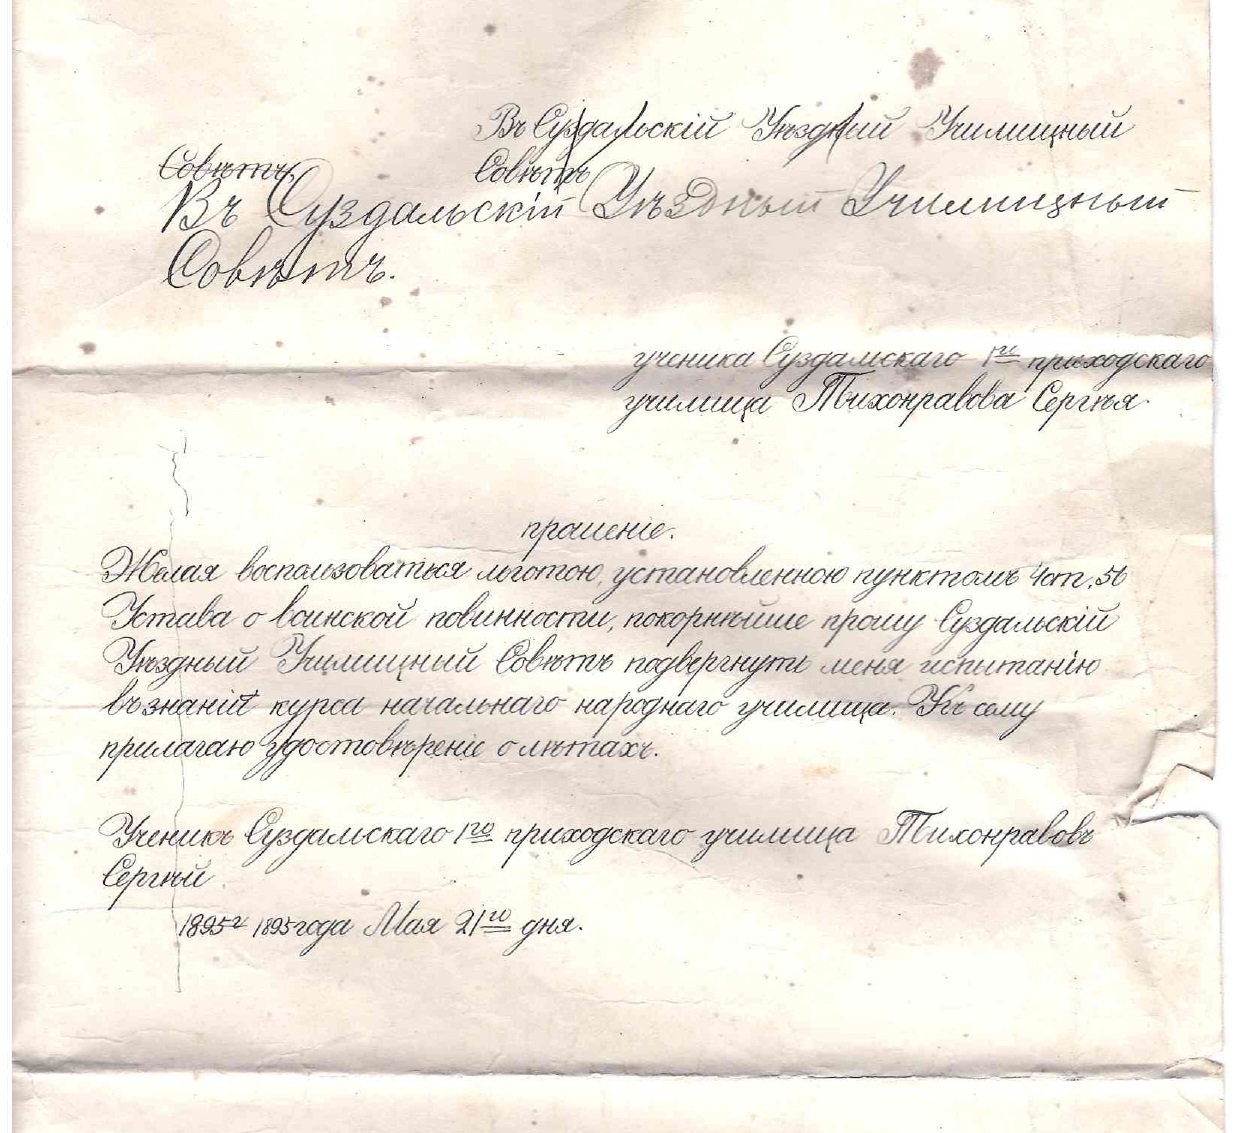 Въ Суздальскій Уѣздный Училищный
Совѣтъ Совѣтъ
Въ Суздальскій Уѣздный Училищный
Совѣтъ.
ученика Суздальскаго 1го приходскаго
училища Тихонравова Сергѣя.
прошеніе.
Желая воспользоваться льготою, установленною пунктомъ 4 ст. 56
Устава о воинской повинности, покорнѣйше прошу Суздальскій
Уѣздный Училищный Совѣтъ подвергнуть меня испытанію
въ знаніи курса начальнаго народнаго училища. Къ сему
прилагаю удостовѣреніе о лѣтахъ.
Ученикъ Суздальскаго 1го приходскаго училища Тихонравовъ
Сергѣй.
1895г 1895 года Мая 21го дня.